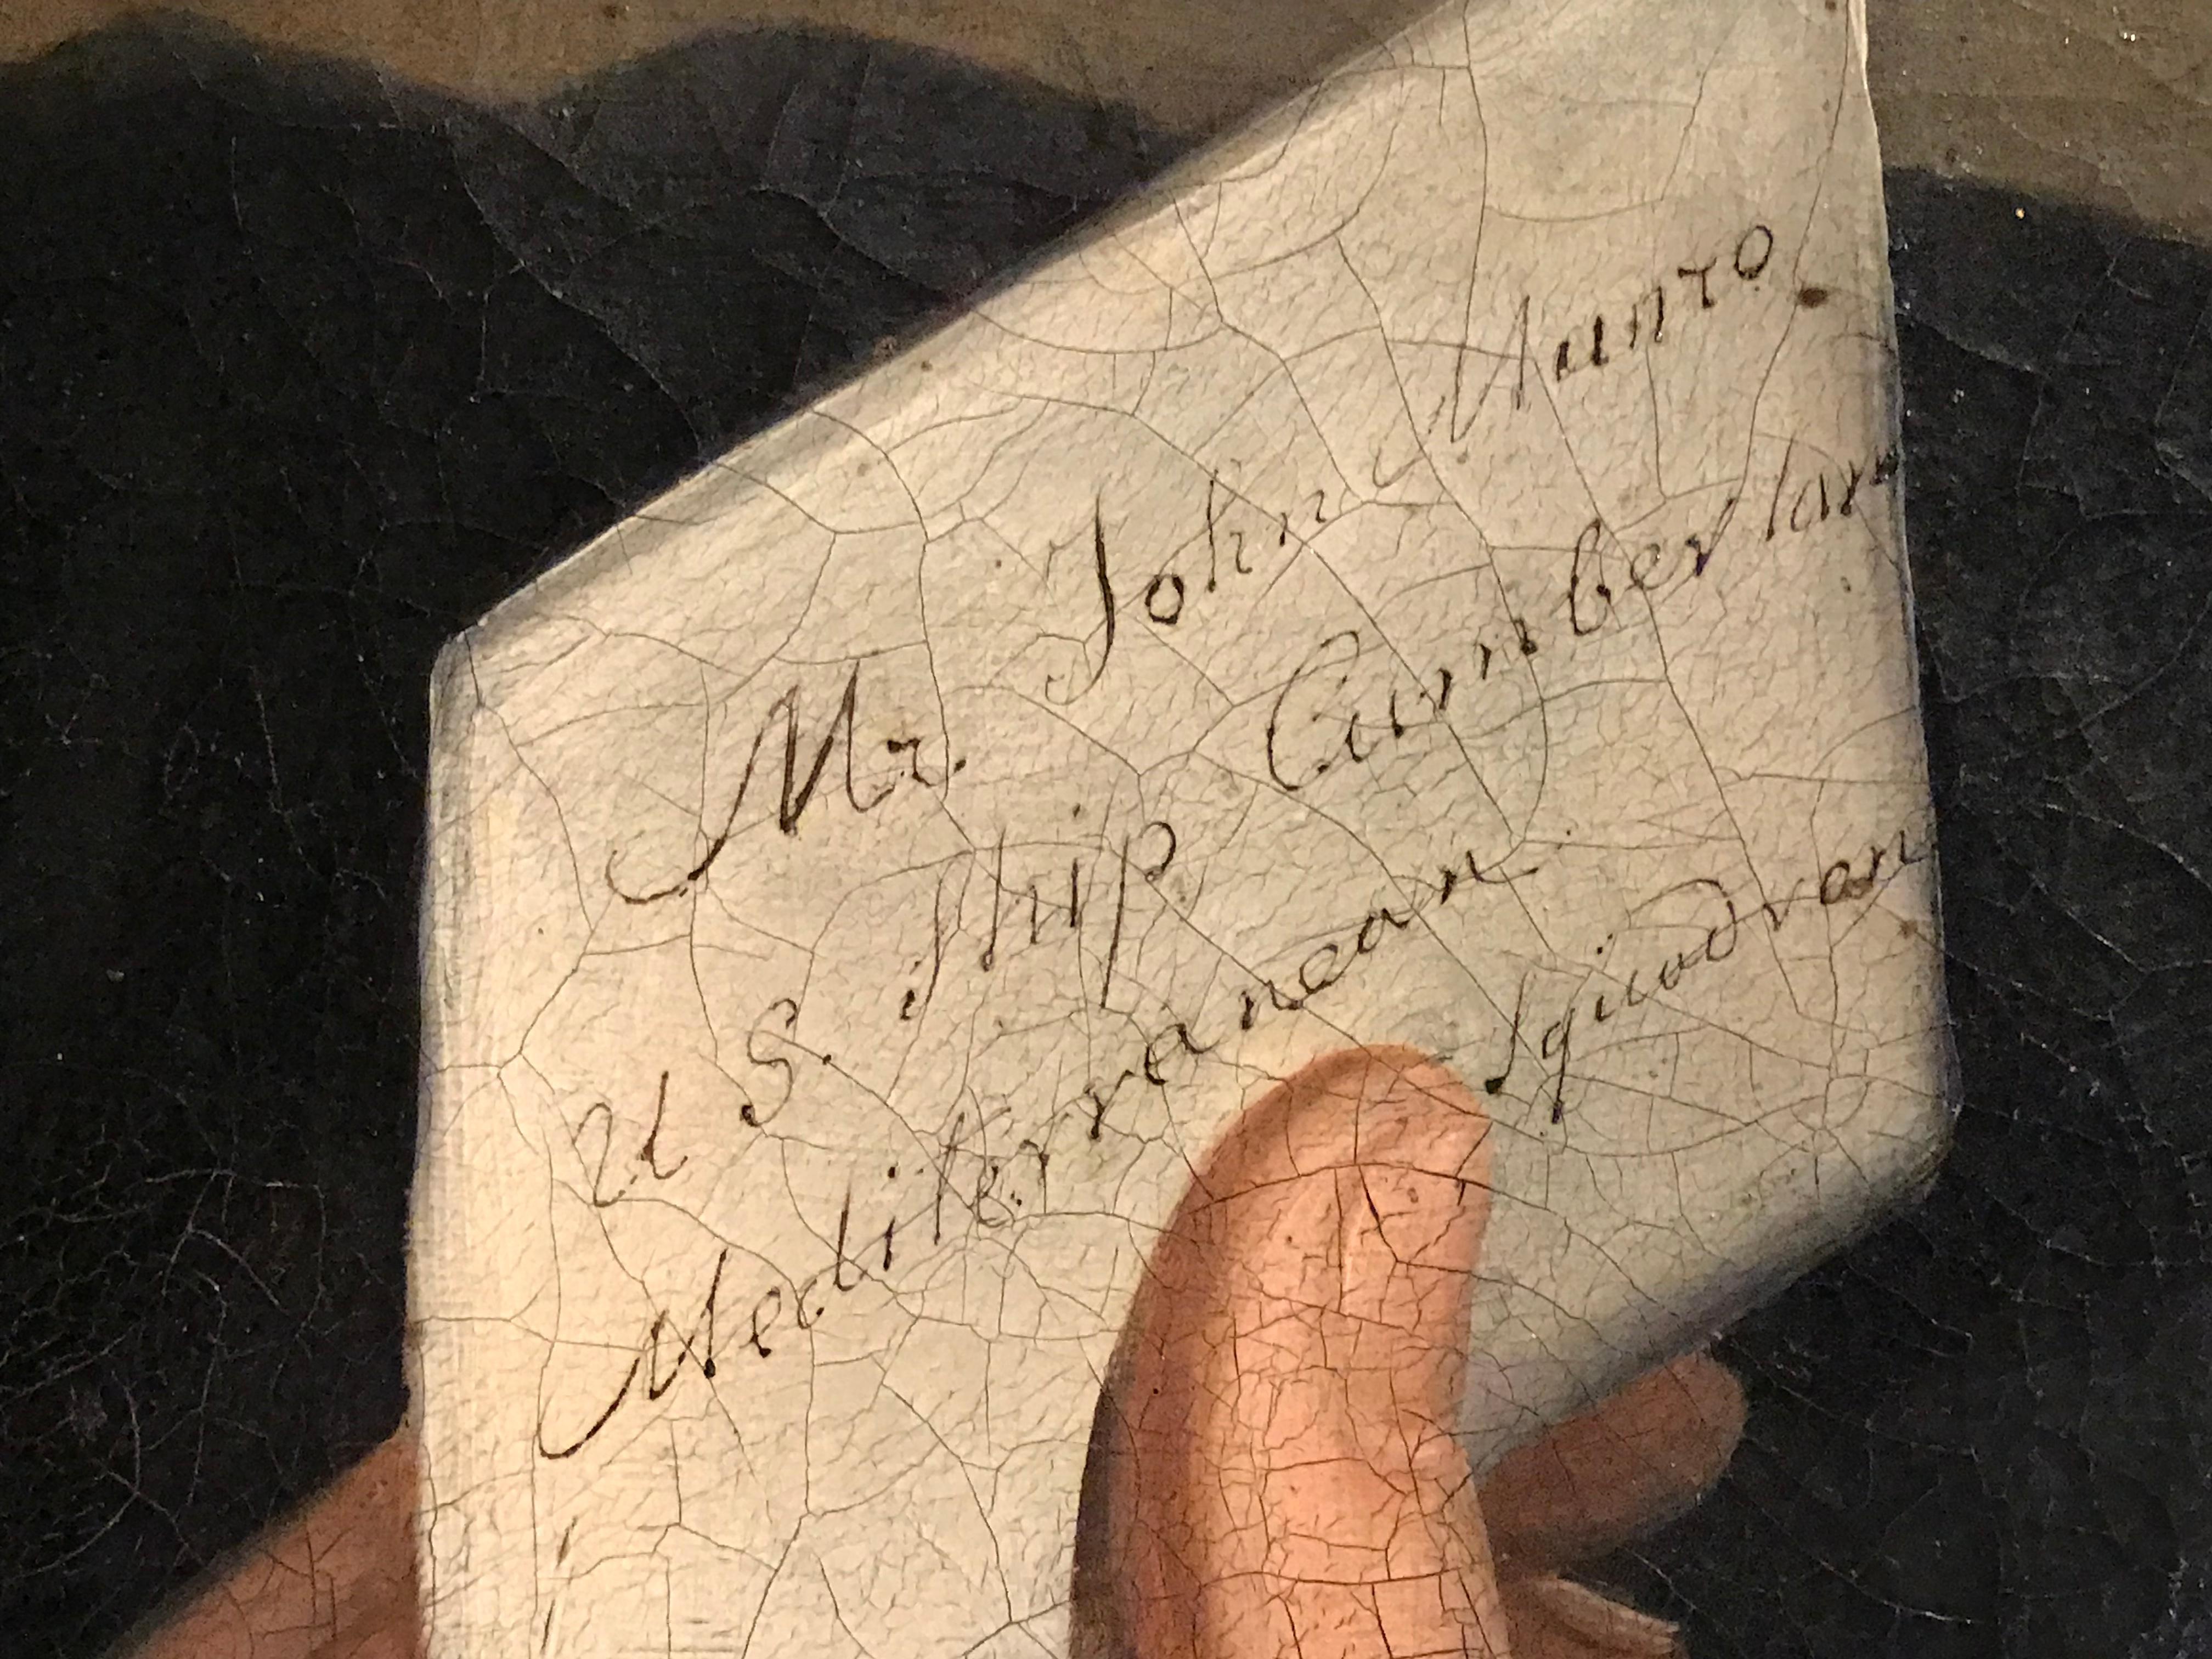 Mr. John Munro.
U S. Ship Cumberlan
Mediterranean Squadron